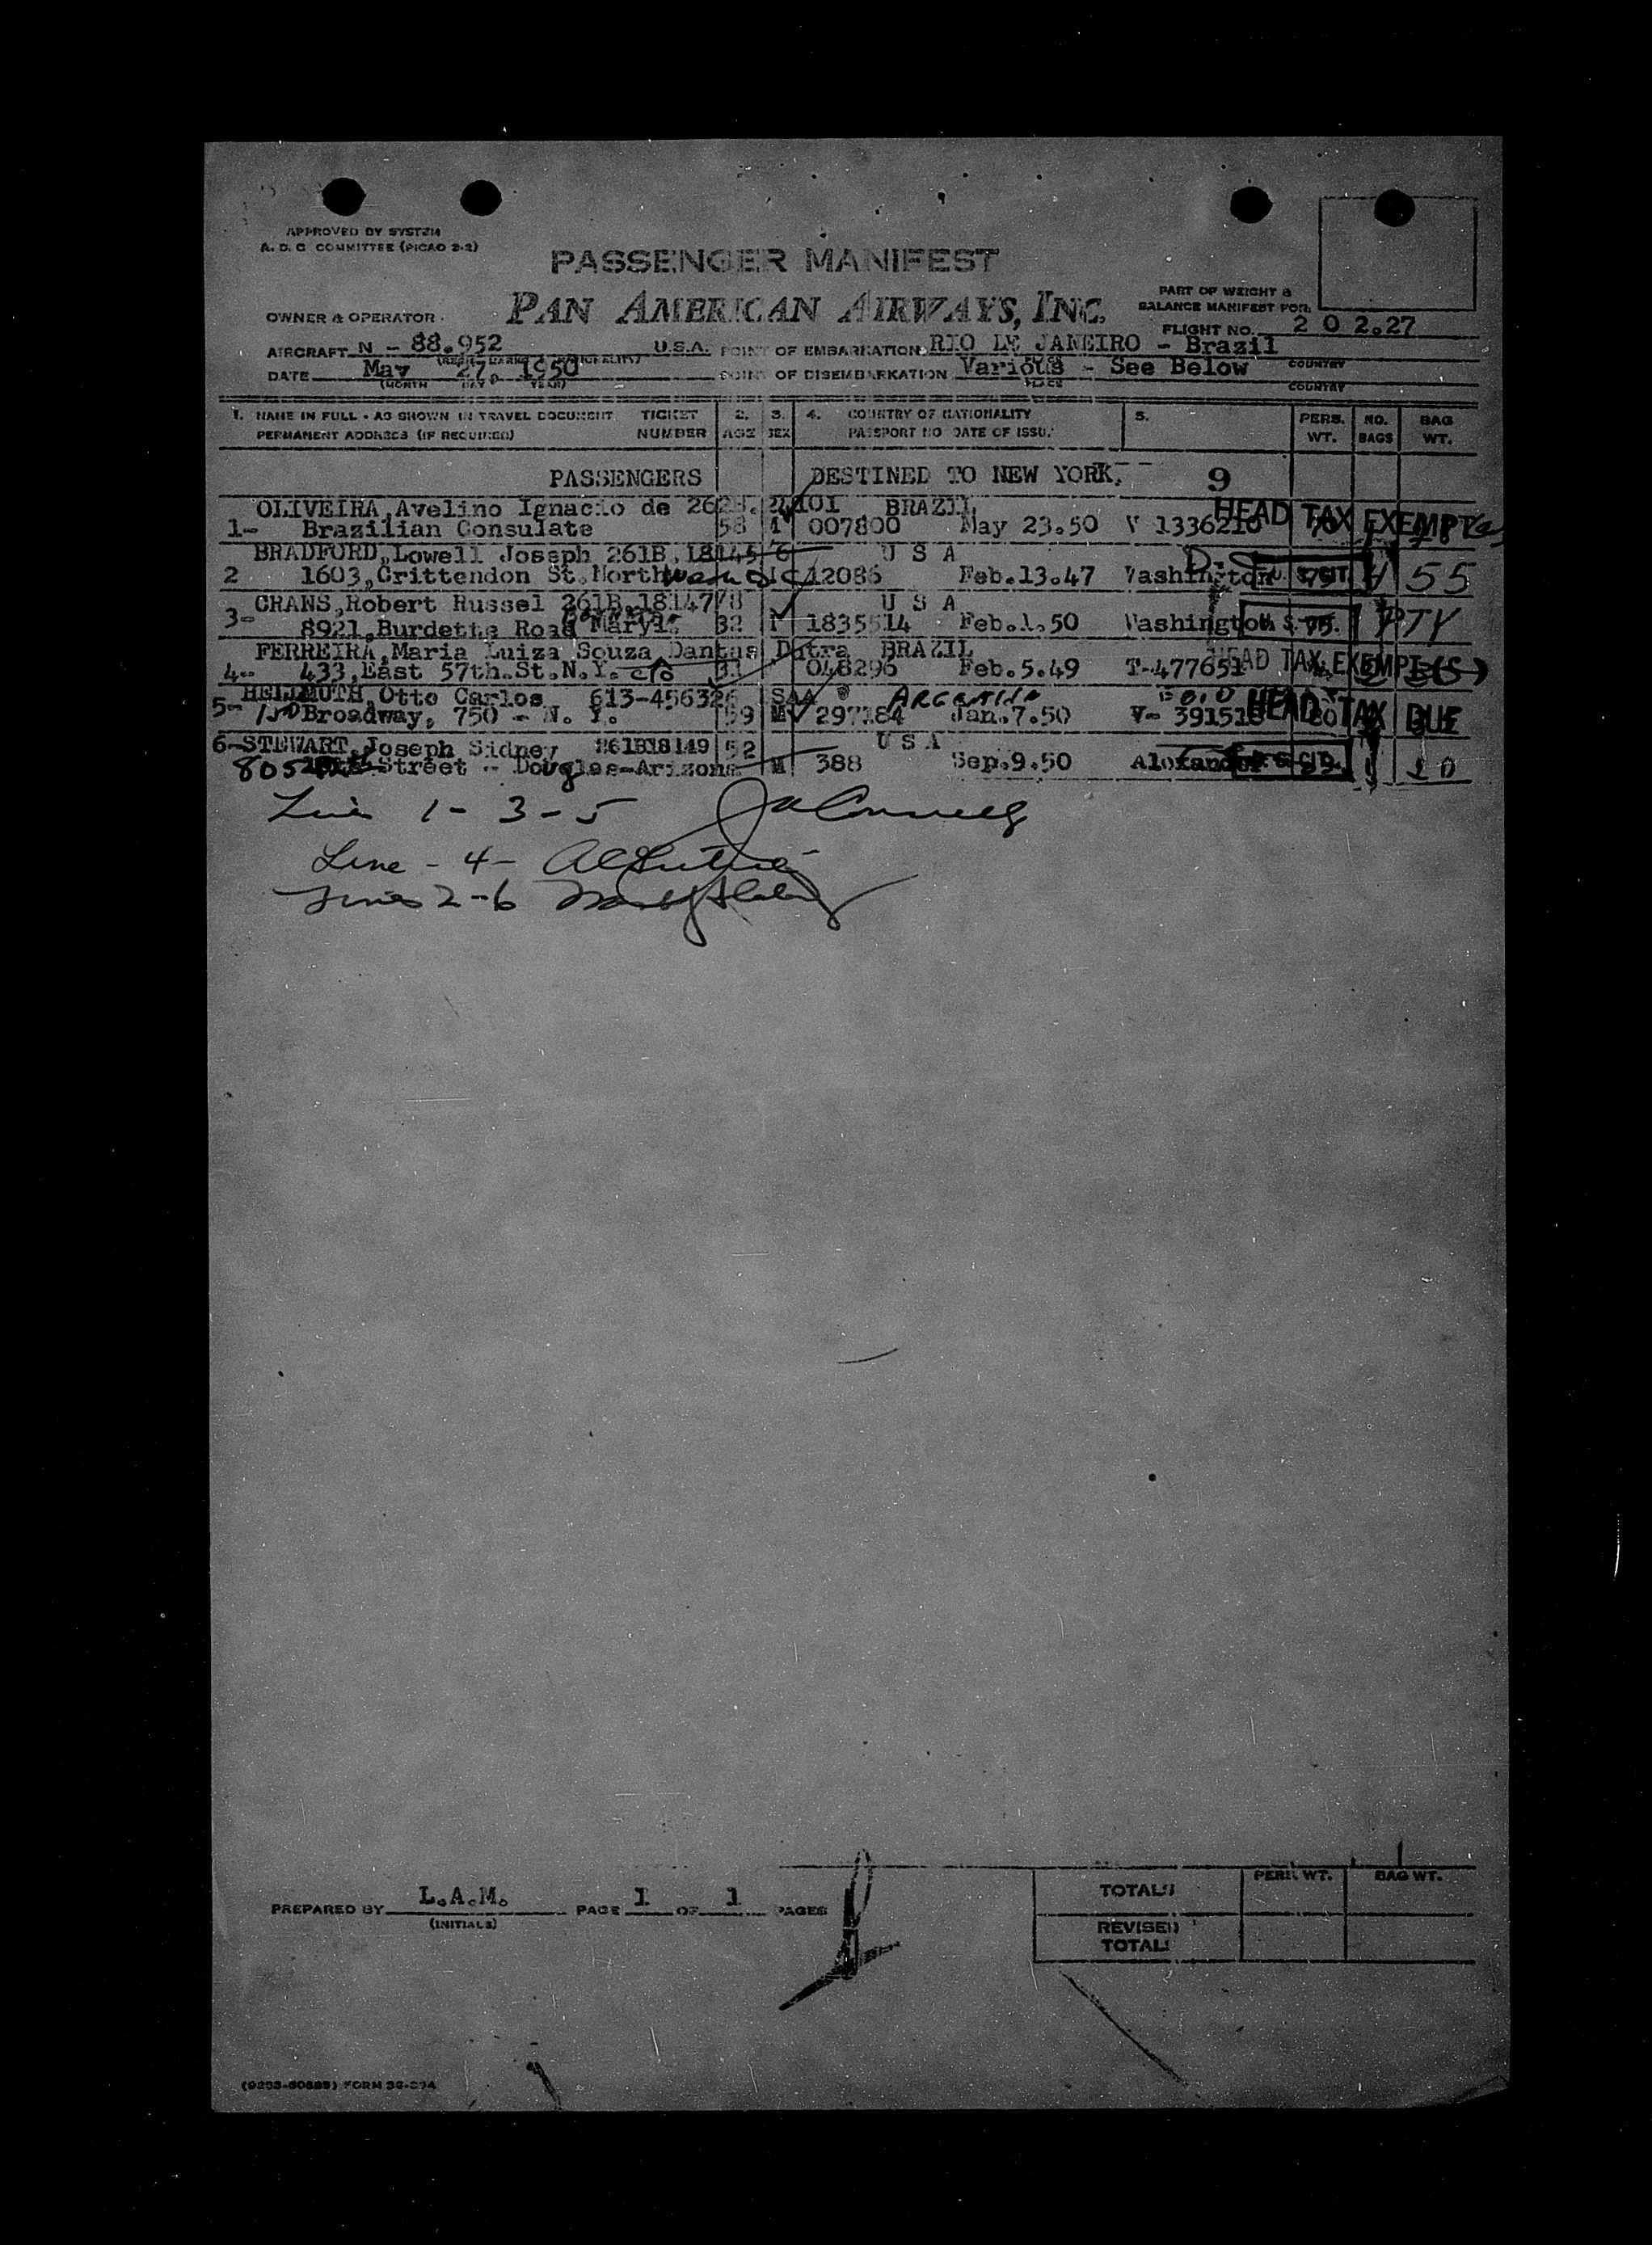 APPROVED BY SYSTEM
A. D. C COMMITTEE (PICAO 2-2)
PASSENGER MANIFEST
PAN AMERICAN AIRWAYS, INC.
PART OF WEIGHT &
BALANCE MANIFEST FOR:
OWNER & OPERATOR
FLIGHT NO. 2 0 2.27
AIRCRAFT N - 88.952 U.S.A. POINT OF EMBARKATION RIO DE JANEIRO - Brazil
DATE May 27, 1950 POINT OF DISEMBARKATION Various - See Below COUNTRY
(MONTH DAY YEAR) PLACE COUNTRY
1. NAME IN FULL - AS SHOWN IN TRAVEL DOCUMENT TICKET 2. 3. 4. COUNTRY OF NATIONALITY 5. PERS. NO. BAG
PERMANENT ADDRESS (IF REQUIRED) NUMBER AGE SEX PASSPORT NO DATE OF ISSUE WT. BAGS WT.
PASSENGERS DESTINED TO NEW YORK. 9
OLIVEIRA, Avelino Ignacio de BRAZIL HEAD TAX EXEMPT
1- Brazilian Consulate 58 007800 May 23.50 V 1336210
BRADFORD, Lowell Joseph 261B.18145 U S A
2 1603, Crittendon St. North 12086 Feb.13.47 Washington 55
CRANS, Robert Russel 261B.18147/8 U S A
3- 8921, Burdette Road Maryl. 32 1835514 Feb.1.50 Washington
FERREIRA, Maria Luiza Souza Dantas Dutra BRAZIL
4- 433, East 57th.St.N.Y. c/o 31 048296 Feb.5.49 T-477651 HEAD TAX EXEMPT (S)
HELLMUTH, Otto Carlos 613-456326 SAA ARGENTINA
5- 150 Broadway, 750 - N. Y. 59 M 297184 Jan.7.50 V- HEAD TAX DUE
6- STEWART, Joseph Sidney 261B18149 52 U S A
805 Street - Douglas-Arizona M 388 Sep.9.50
Line 1 - 3 - 5
Line - 4 -
Lines 2-6
PREPARED BY L.A.M. PAGE 1 OF 1 PAGES
(INITIALS)
TOTALS PERS. WT. BAG WT.
REVISED
TOTALS